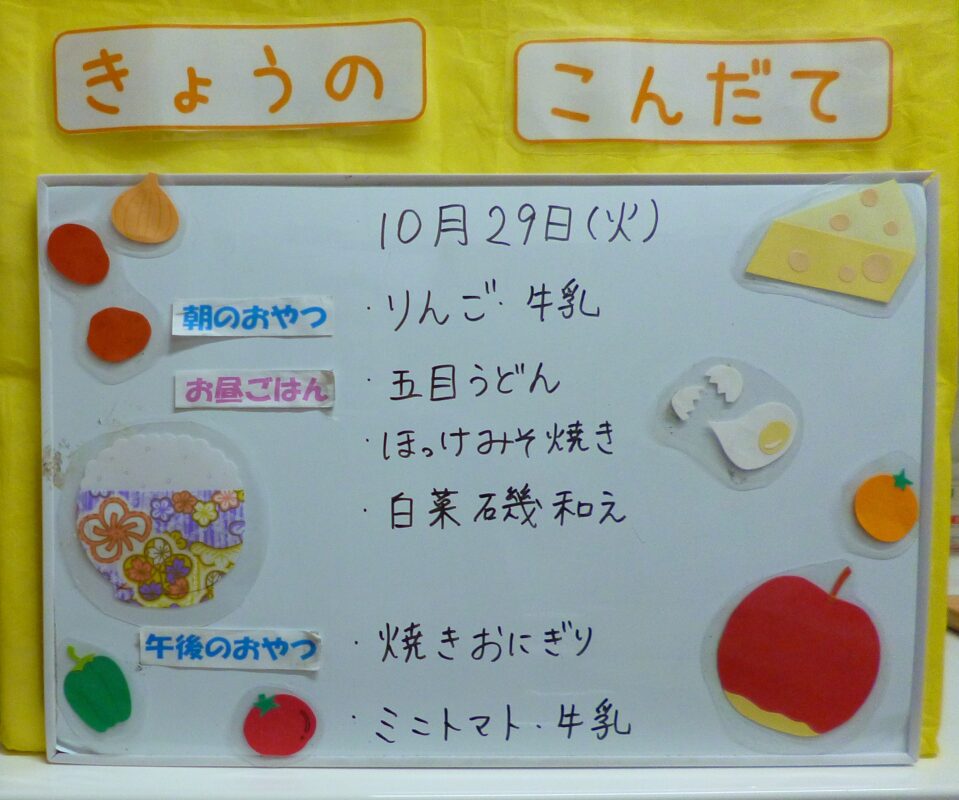 きょうの こんだて
10月29日(火)
朝のおやつ ・りんご・牛乳
お昼ごはん ・五目うどん
・ほっけみそ焼き
・白菜磯和え
午後のおやつ ・焼きおにぎり
・ミニトマト・牛乳